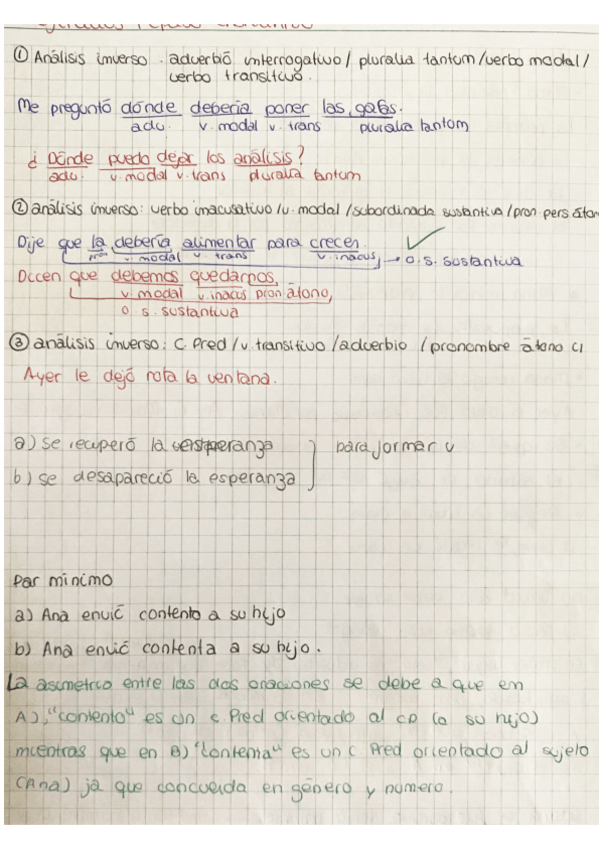 ① Análisis inverso. adverbio interrogativo / pluralia tantum / verbo modal /
verbo transitivo.
Me preguntó dónde debería poner las gafas.
adv. v. modal v. trans pluralia tantum
¿ Dónde puedo dejar los análisis?
adv. v. modal v. trans pluralia tantum
② análisis inverso: verbo inacusativo / v. modal / subordinada sustantiva / pron pers áton
Dije que la debería alimentar para crecer. ✓
pron v. modal v trans v. inacus, → O. S. sustantiva
Dicen que debemos quedarnos,
v modal v. inacus pron átono,
O S. sustantiva
③ análisis inverso: C. Pred / v transitivo / adverbio / pronombre átono CI
Ayer le dejó rota la ventana.
a) se recuperó la esperanza
para formar v
b) se desapareció la esperanza
Par mínimo
a) Ana envió contento a su hijo
b) Ana envió contenta a su hijo.
La asimetría entre las dos oraciones se debe a que en
A), "contento" es un C Pred orientado al CD (a su hijo)
mientras que en B) "contenta" es un C Pred orientado al sujeto
(Ana) ya que concuerda en género y numero.